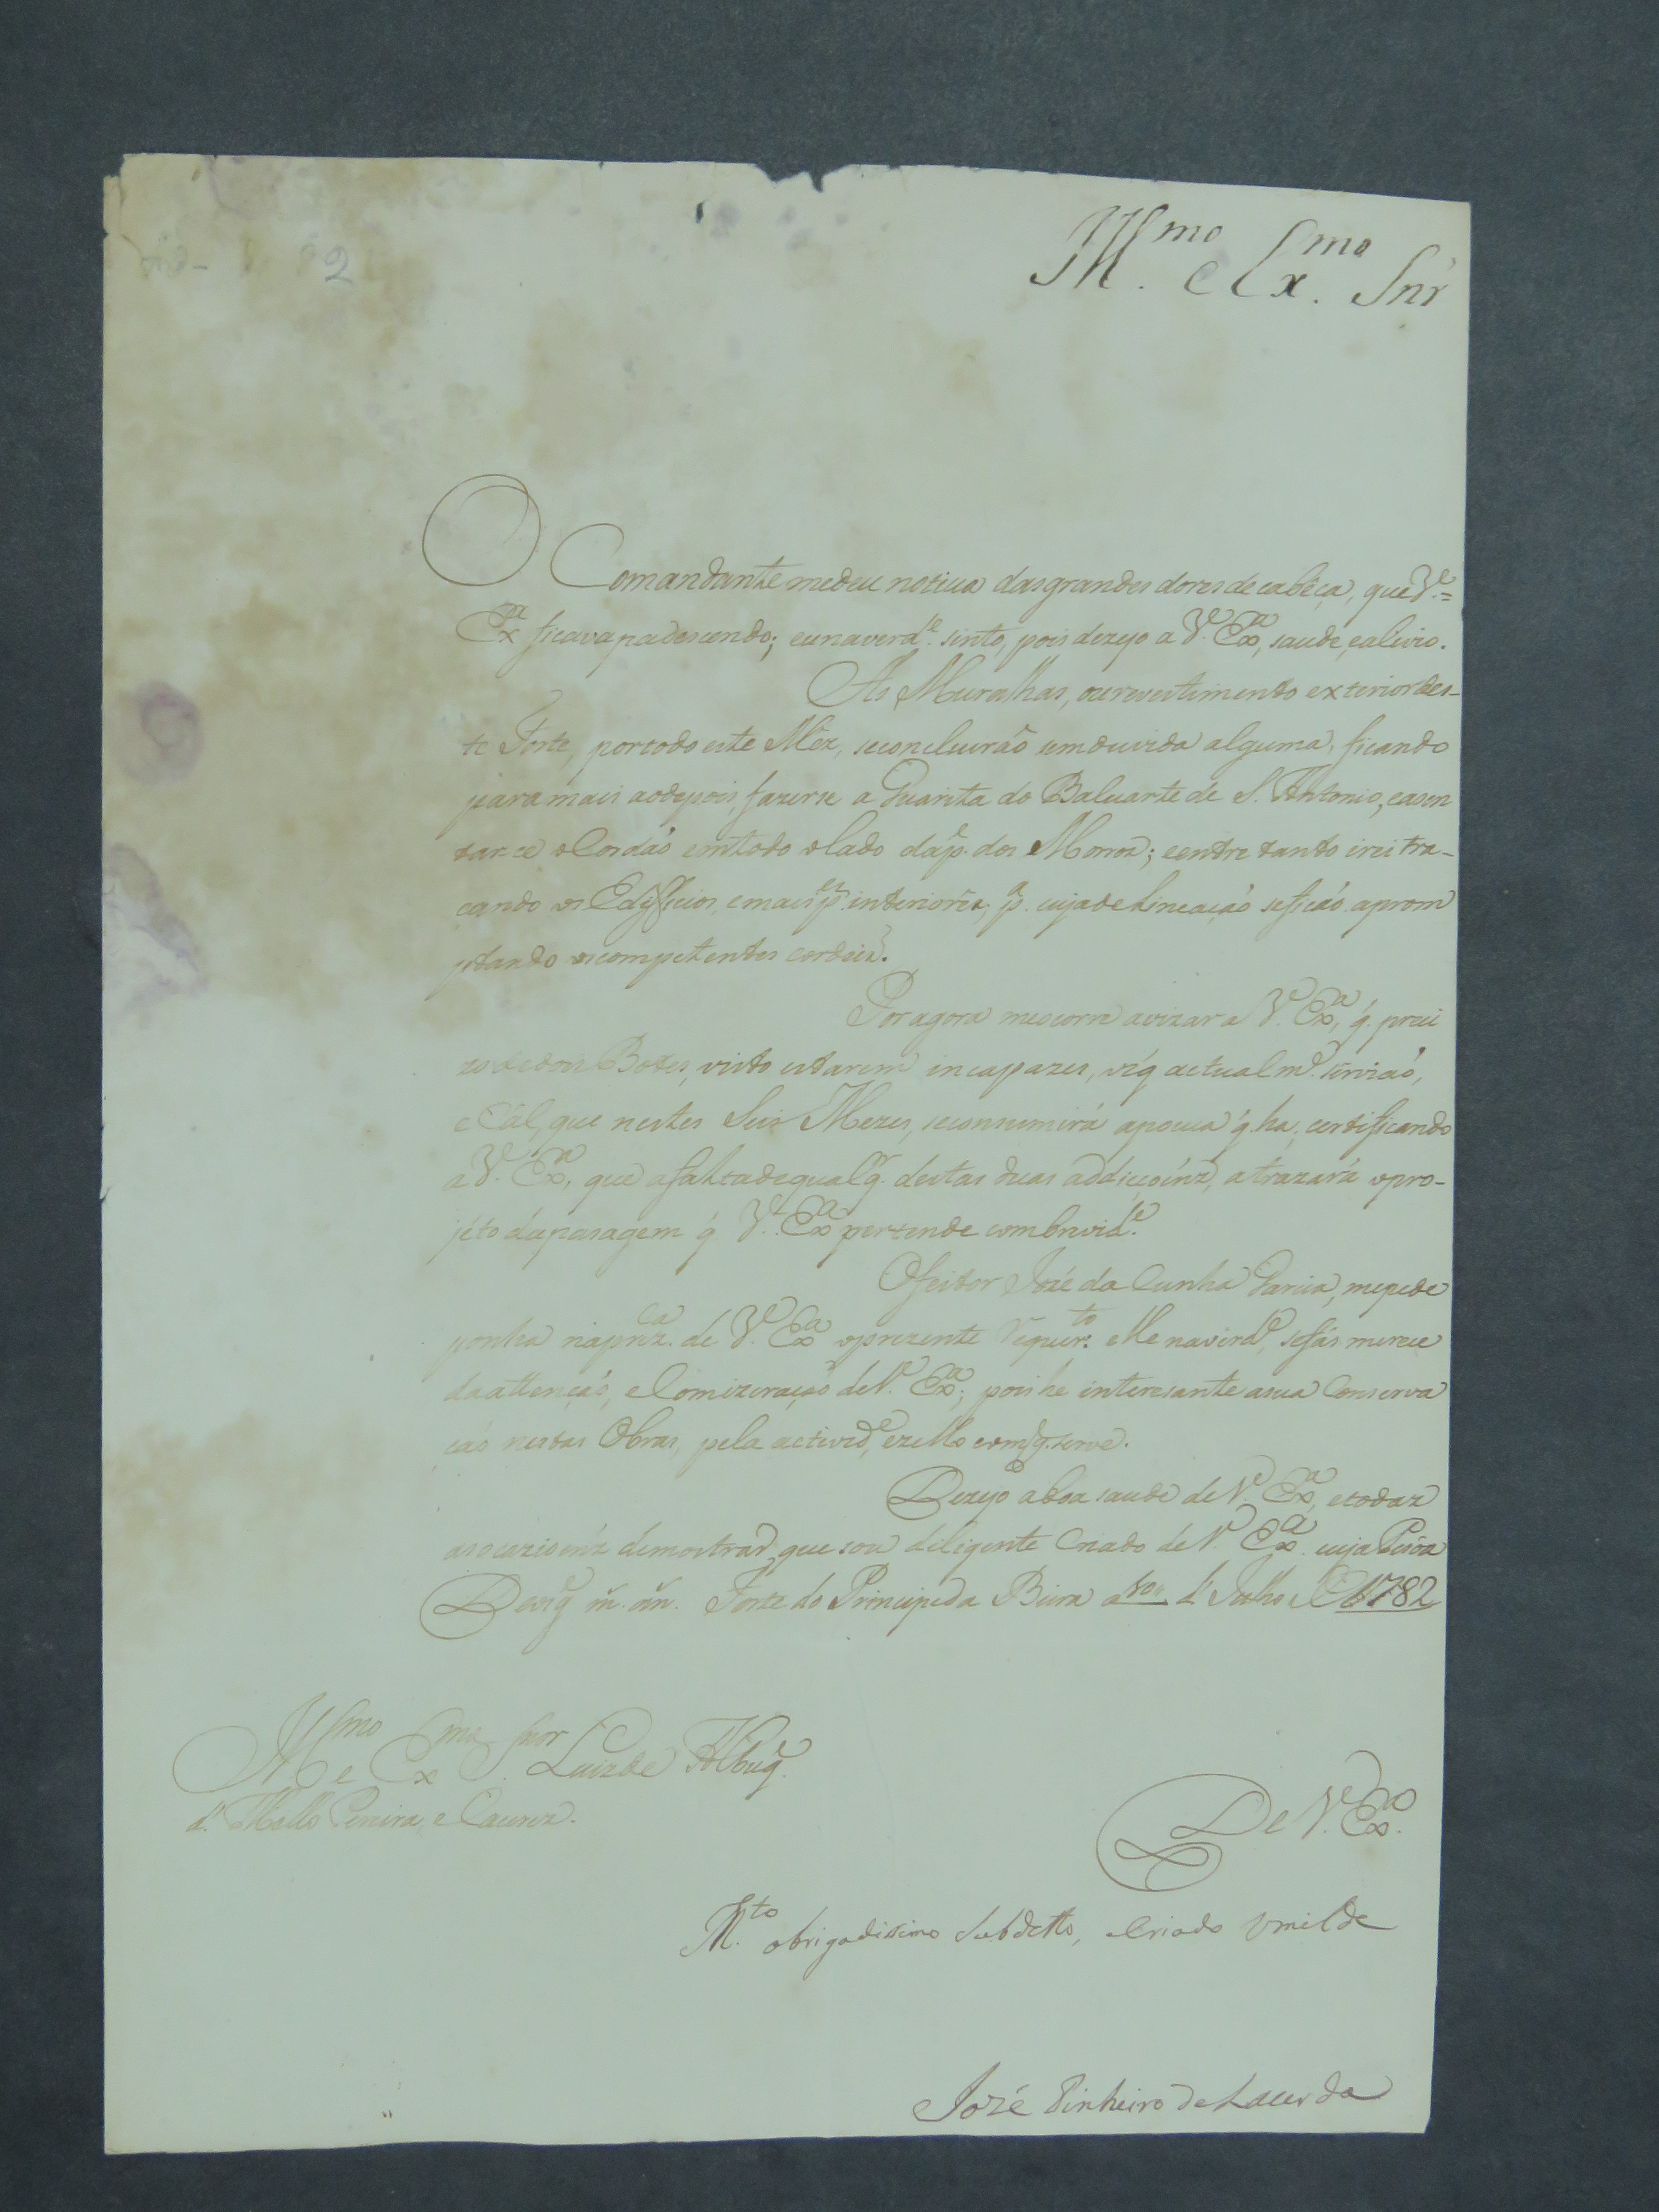 2
Ill.mo e Ex.mo Snr
O Comandante medeu noticia das grandes dores de cabêça, que V.e=
Ex.a ficava padescendo; eu na verd.e sinto, pois dezejo a V.e Ex.a, saude, e alivio.
As Muralhas, ou revestimento exterior des-
te Forte, por todo este Mêz, se concluiráõ sem duvida alguma, ficando
para mais ao depois, fazerse a Guarita do Baluarte de S. Antonio, e asen
tar-ce o Cordáõ em todo o lado da p.e dos Morros; e entre tanto irei tra-
çando os Edifficios, e mais p.es interiores, p.a cuja deLineaçaõ se ficáõ aprom
ptando os competentes cordeis.
Por agora me ocorre avizar a V.e Ex.a, q. preci
zo de dois Botes, visto estarem incapazes, os q actualm.e serviaõ,
e Cál, que nestes Seis Mezes, se consumirá a pouca q. ha, certificando
a V.e Ex.a, que a falta de qualq.r destas duas addiçcoins, atrazará o pro-
jéto da pasagem q V.e Ex.a pertende com brevid.e
O feitor Jozé da Cunha Garcia, me pede
ponha na prez.ca de V.e Ex.a o prezente requer.to elle na verd.e, se fás merece
da attençaõ, e Comizeraçaõ de V.e Ex.a; pois he interesante a sua Conserva
çaõ nestas Obras, pela activid.e, e zello com q. serve.
Dezejo a boa saude de V.e Ex.a, e todaz
as ocazioins demostrar, que sou diligente Criado de V.e Ex.a cuja Pesoa
Deos g.e m.s an.s Forte do Principe da Beira a 10 d' Julho d' 1782
Ill.mo e Ex.mo Snor Luiz de Albuq.
d' Mello Pereira, e Caceres.
De V.e Ex.a
M.to obrigadissimo Subdetto, e Criado Umilde
Jozé Pinheiro de Lacerda